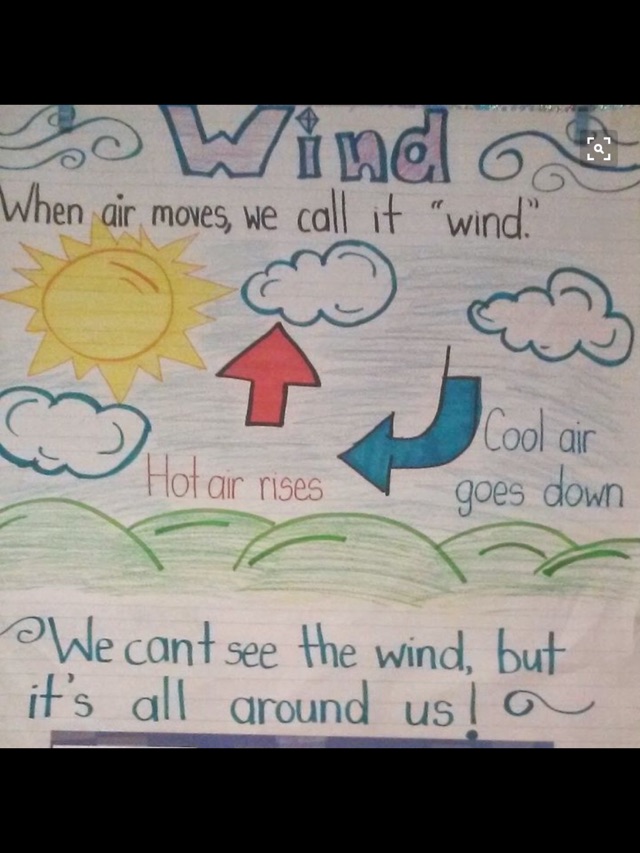 Wind
When air moves, we call it "wind."
Hot air rises
Cool air
goes down
We cant see the wind, but
it's all around us!